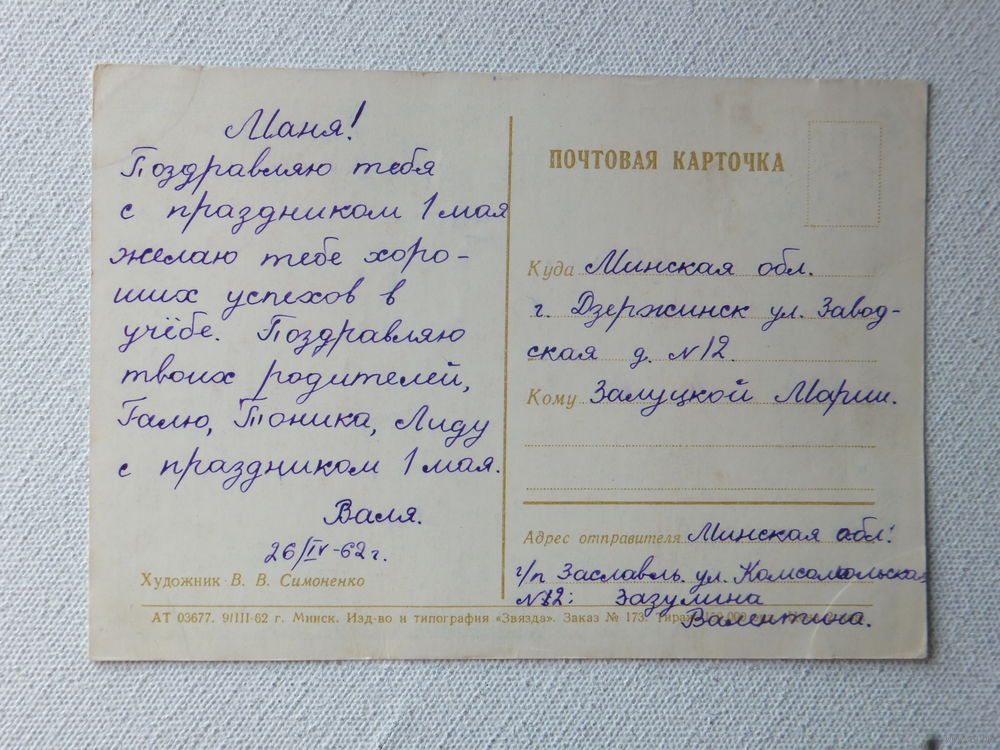 Маня!
Поздравляю тебя
с праздником 1 мая
желаю тебе хоро-
ших успехов в
учёбе. Поздравляю
твоих родителей,
Галю, Тоника, Лиду
с праздником 1 мая.
Валя.
26/IV-62 г.
Художник В. В. Симоненко
ПОЧТОВАЯ КАРТОЧКА
Куда Минская обл.
г. Дзержинск ул. Завод-
ская д. №12.
Кому Залуцкой Марии.
Адрес отправителя Минская обл.
г/п Заславль. ул. Комсомольская
№12: Зазулина
Валентина.
АТ 03677. 9/III-62 г. Минск. Изд-во и типография «Звязда». Заказ № 173. Тираж